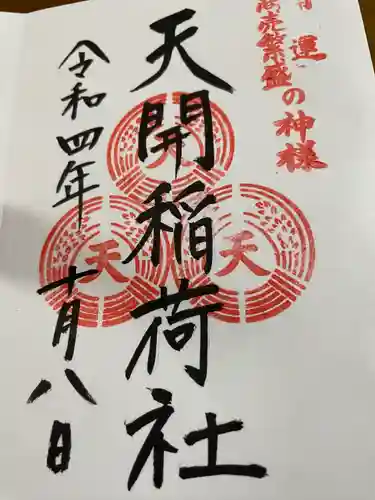 開運
商売繁盛の神様
天開稲荷社
天
天
令和四年
十月八日